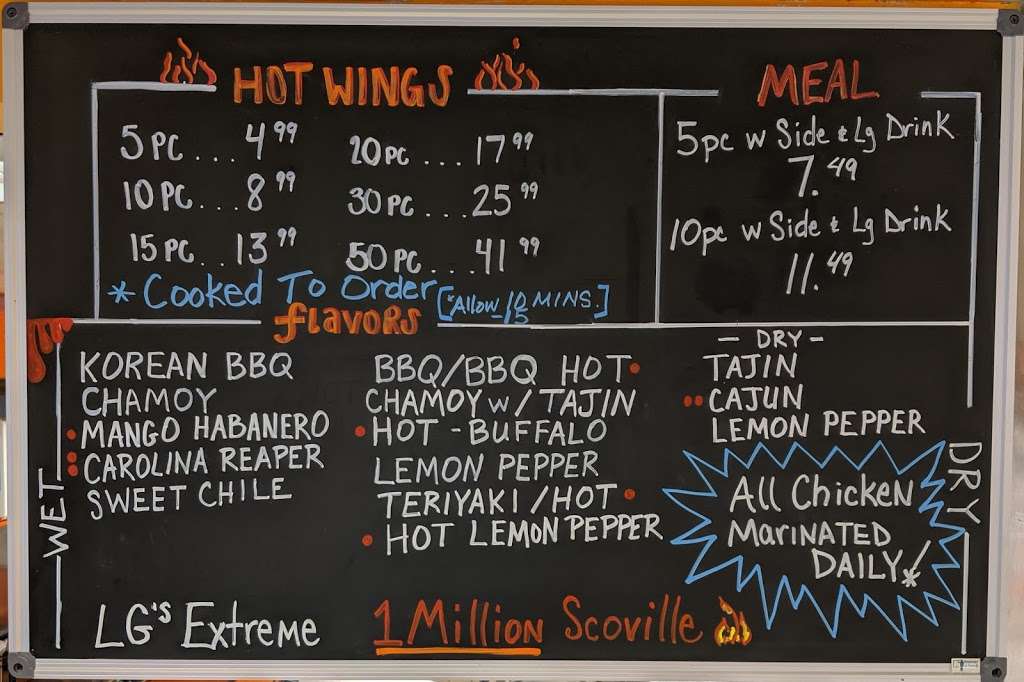 HOT WINGS
5 PC ... 4.99
10 PC ... 8.99
15 PC ... 13.99
20 PC ... 17.99
30 PC ... 25.99
50 PC ... 41.99
* Cooked To Order
MEAL
5pc w Side & Lg Drink
7.49
10pc w Side & Lg Drink
11.49
flavors
WET
KOREAN BBQ
CHAMOY
MANGO HABANERO
CAROLINA REAPER
SWEET CHILE
BBQ/BBQ HOT
CHAMOY w/ TAJIN
HOT - BUFFALO
LEMON PEPPER
TERIYAKI / HOT
HOT LEMON PEPPER
- DRY -
TAJIN
CAJUN
LEMON PEPPER
DRY
All Chicken
Marinated
DAILY!
LG's Extreme
1 Million Scoville
[*Allow MINS.]